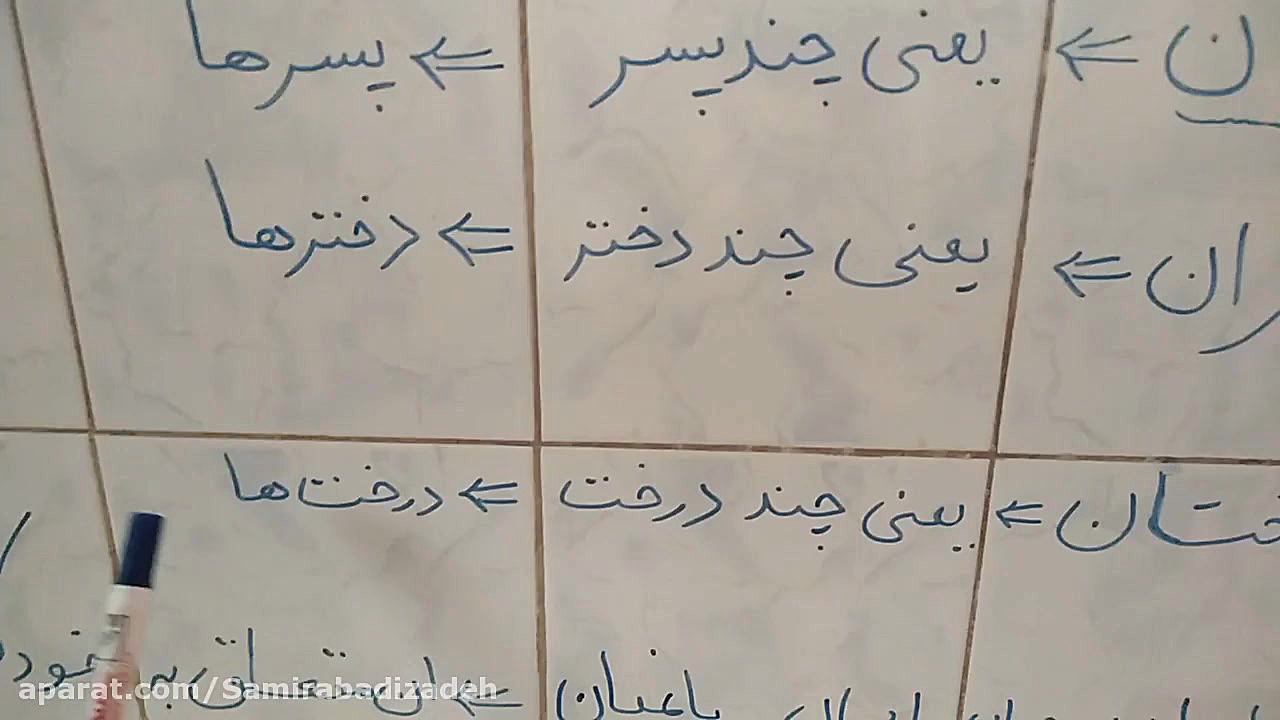 ن ⇐ یعنی چند پسر ⇐ پسرها
ران ⇐ یعنی چند دختر ⇐ دخترها
ختان ⇐ یعنی چند درخت ⇐ درخت ها
ان متعلق به خود
aparat.com/Samirabadizadeh